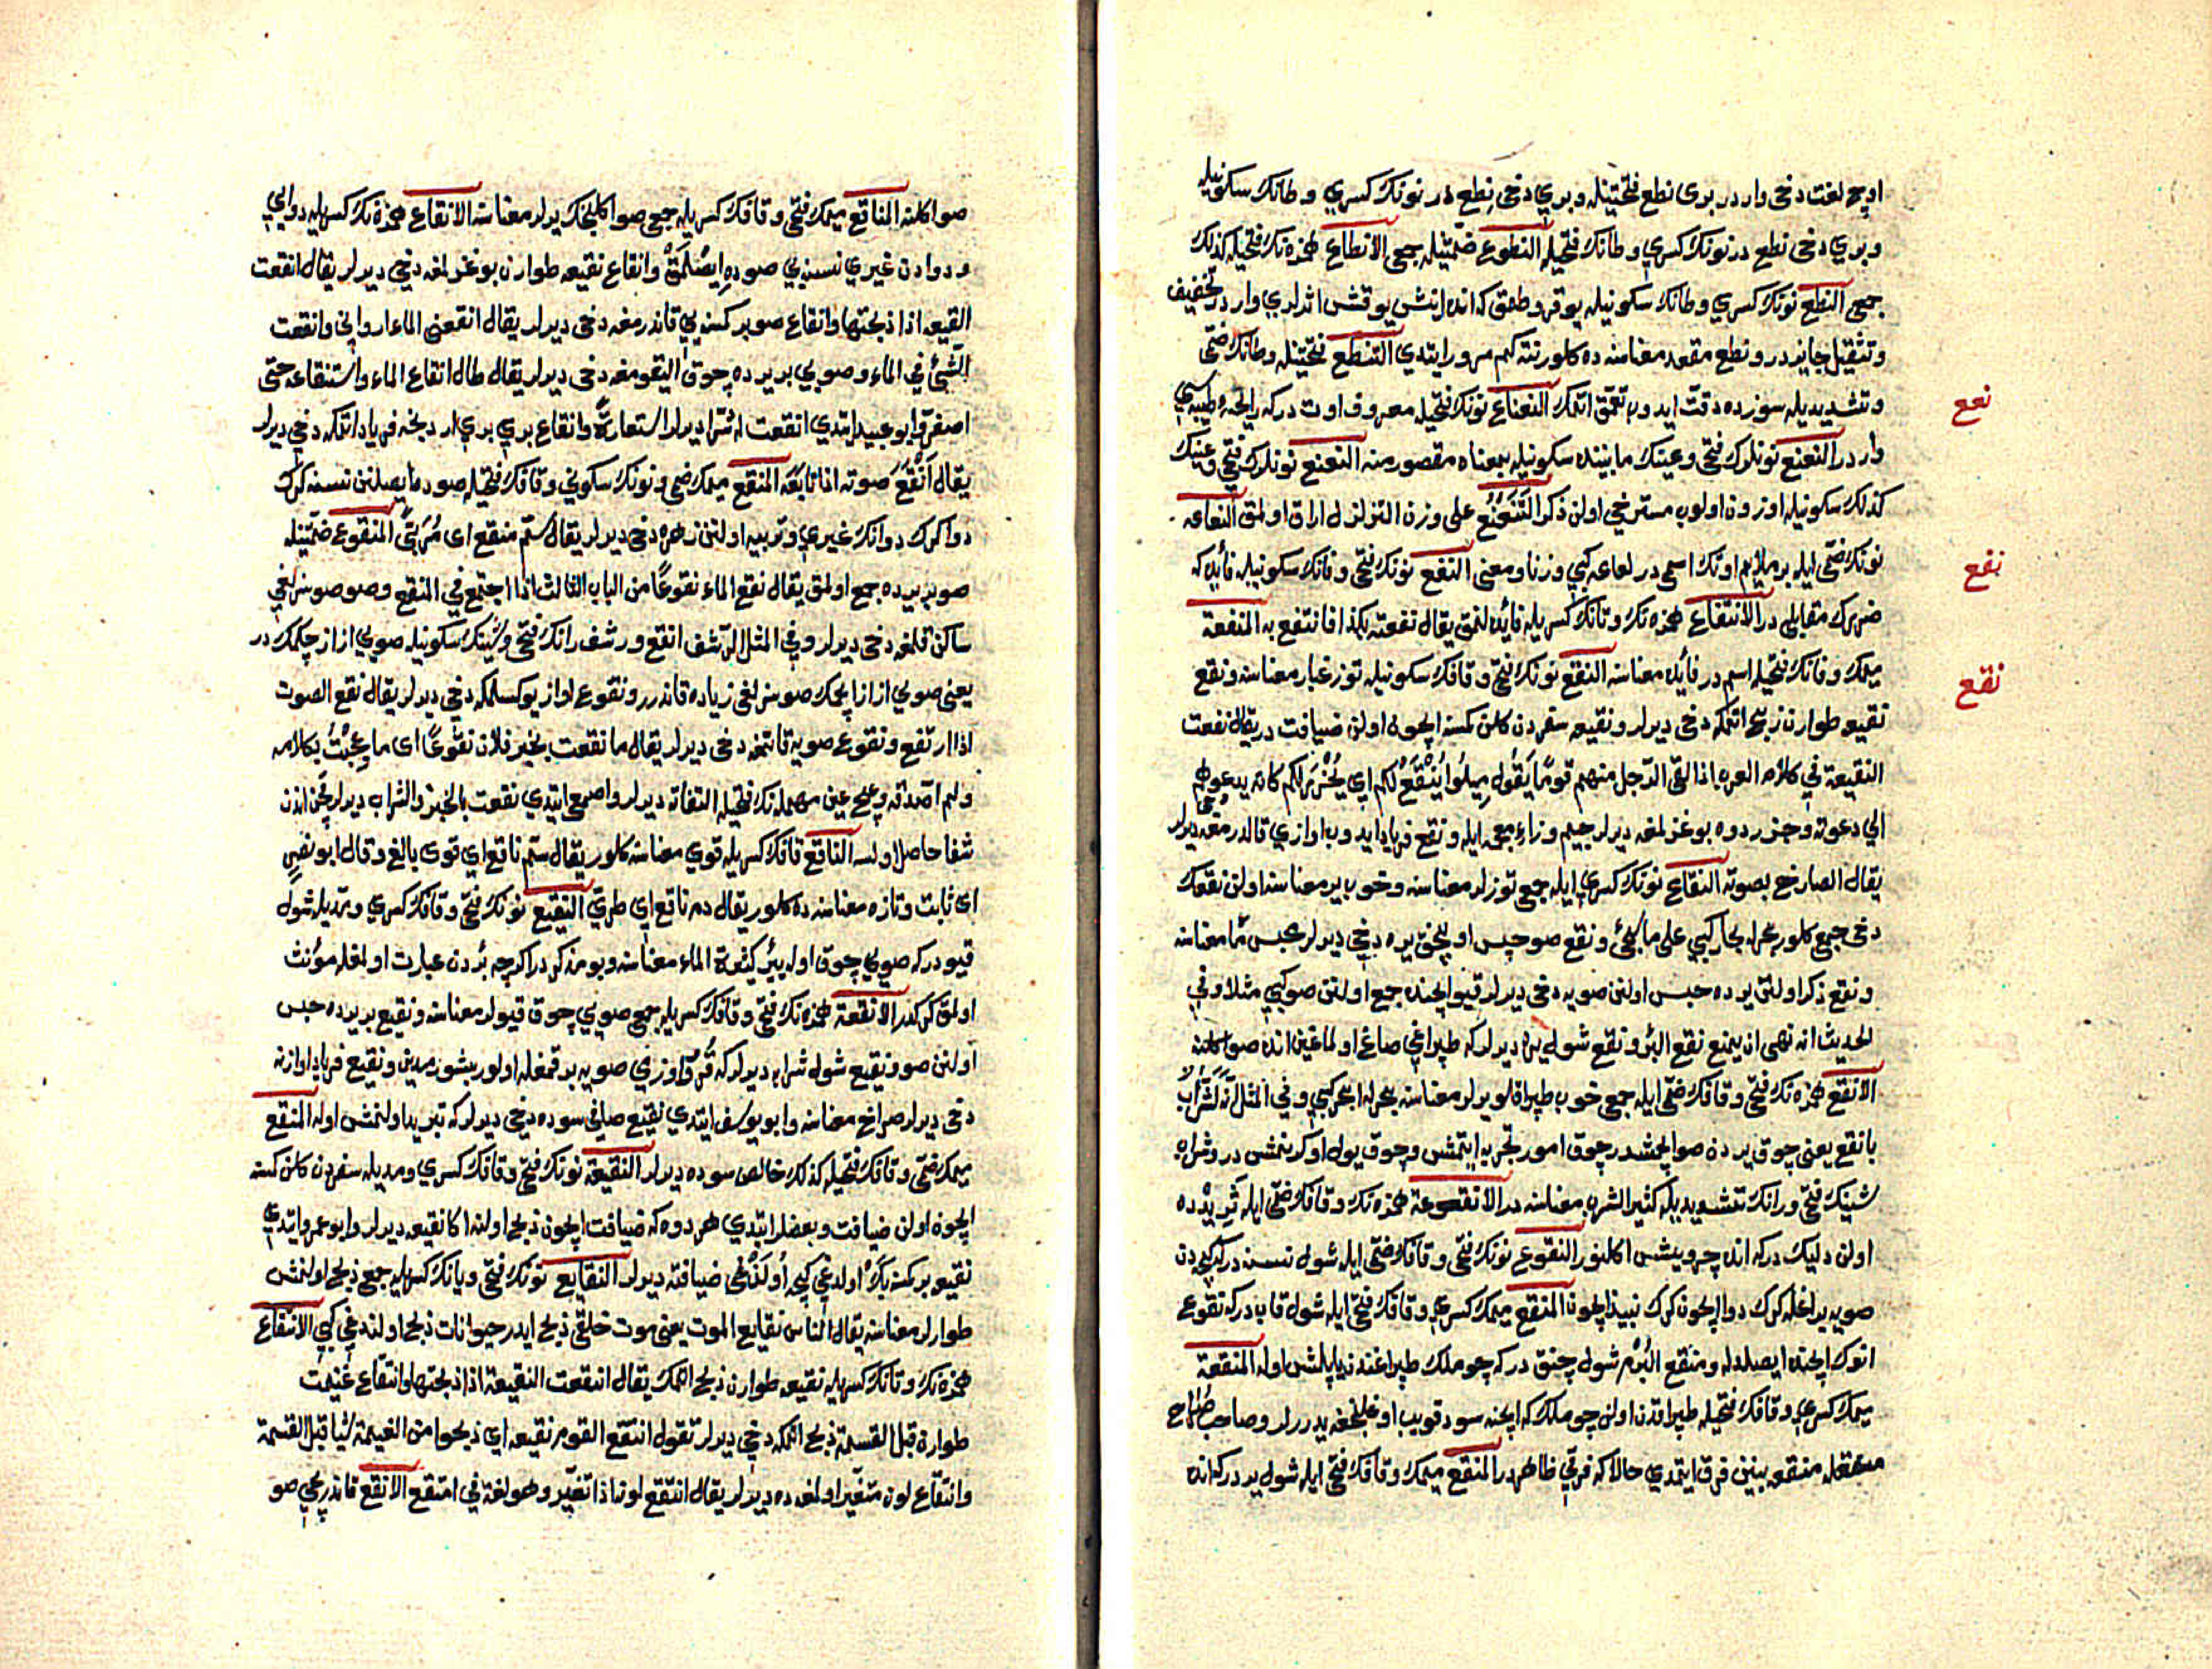 اوچ لغت دخی وار در بری نطع فتحتینله وبری دخی نطع در نونك كسری و طانك سكونیله
وبری دخی نطع در نونك كسری وطانك فتحیله النطوع ضمتینله جمعی الانطاع همزه نك فتحیله كذلك
جمعی النطع نونك كسری وطانك سكونیله
وتشدیدیله سوزده دقت ایدوب تعمق اتمك النعناع نونك فتحیله معروف اوت دركه رایحهٔ طیبه سی
نعع
وار در النعنع نونلرك فتحی وعینك مابینده سكونیله بمعناه مقصور منه النعنع نونلرك فتحی وعینك
كذلك سكونیله اوزون اولوب مسترخی اولن ذكر التنعنع علی وزن التزلزل ایراق اولمق النعاعه
نونك ضمی ایله بر ملایم اوتك اسمی در لعاعه كبی وزنا ومعنی النفع نونك فتحی وفانك سكونیله فائده كه
نفع
ضررك مقابلی در الانتفاع همزه نك وتانك كسریله فائده لنمق یقال نفعته بكذا فانتفع به المنفعة
میمك وفانك فتحیله اسم در فائده معناسنه النقع نونك فتحی وقافك سكونیله توز غبار معناسنه ونقع
نقع
نقیعه طوارن ذبح اتمكه دخی دیرلر ونقیعه سفردن كلن كمسه ایچون اولن ضیافت در یقال نقعت
النقیعة فی كلام العرب اذا لقی الرجل منهم قوما یقول میلوا ینقع لكم ای یجزر لكم كانه یدعوهم
الی دعوته وجزر دوه بوغزلمغه دیرلر جیم وزاء معجمه ایله ونقع فریاد ایدوب اوازی قالدرمغه دخی دیرلر
یقال الصارخ بصوته النقاع نونك كسری ایله جمع توزلر معناسنه وخوب یر معناسنه اولن نقعك
دخی جمعی كلور بحر له بحار كبی علی ما یجئ ونقع صو حبس اولنجق یره دخی دیرلر محبس ما معناسنه
ونقع ذكر اولنن یرده حبس اولنن صویه دخی دیرلر قیو ایچنده جمع اولنن صو كبی مثلا وفی
الحدیث انه نهی ان یمنع نقع البئر ونقع شول یره دیرلر كه طپراغی صاغ اولماغین انده صو اكلنه
الانقع همزه نك فتحی وقافك ضمی ایله جمعی خوب طپراقلو یرلر معناسنه بحر له ابحر كبی وفی المثل انه لشراب
بانقع یعنی چوق یردن صو ایچمشدر چوق امور تجربه ایتمش وچوق یول اوكرنمش در وشراب
شینك فتحی ورانك تشدیدیله كثیر الشرب معناسنه در الانقوعة همزه نك وقافك ضمی ایله ثریدده
اولن دلیك در كه انده چرویش اكلنور النقوع نونك فتحی وقافك ضمی ایله شول نسنه در كه كیجه دن
صویه براغله كرك دوا ایچون كرك نبیذ ایچون المنقع میمك كسری وقافك فتحی ایله شول قاب در كه نقوع
انوك ایچنده ایصلدله ومنقع البرم شول چنق در كه چوملك طپراغندن یاپلمش اوله المنقعة
میمك كسری وقافك فتحیله طپراقدن اولن چوملك كه ایچنه سود قویب اوغلنجغه یدررلر وصاحب صحاح
منقعله منقعه بینن فرق ایتمدی حالا كه فرقی ظاهر در المنقع میمك وقافك فتحی ایله شول یر در كه انده
صو اكلنه المناقع میمك فتحی وقافك كسریله جمع صو اكلنجك یرلر معناسنه الانقاع همزه نك كسریله دوایی
ودوادن غیری نسنه یی صوده ایصلمق وانقاع نقیعه طوارن بوغزلمغه دخی دیرلر یقال انقعت
القیعه اذا ذبحتها وانقاع صو بر كمسه یی قاندرمغه دخی دیرلر یقال انقعنی الماء ای اروانی وانقعت
الشئ فی الماء وصویی بر یرده چوق الیقومغه دخی دیرلر یقال طال انقاع الماء واستنقاعه حتی
اصفر وابو عبید ایتدی انقعت له شرا دیرلر استعارة وانقاع بری بری اردنجه فریاد اتمكه دخی دیرلر
یقال انقع صوته اذا تابعه المنقع میمك ضمی ونونك سكونی وقافك فتحیله صوده ایصلنن نسنه كرك
دوا كرك دوانك غیری وتربیه اولنن زهره دخی دیرلر یقال سم منقع ای مربی النقوع ضمتینله
صو بر یرده جمع اولمق یقال نقع الماء نقوعا من الباب الثالث اذا اجتمع فی النقع وصو صوسزلغی
ساكن قلمغه دخی دیرلر وفی المثل الرشف انقع ورشف رانك فتحی وشینك سكونیله صویی از از چكمك در
یعنی صویی از از ایچمك صوسزلغی زیاده قاندرر ونقوع اواز یوكسلمكه دخی دیرلر یقال نقع الصوت
اذا ارتفع ونقوع صویه قانمغه دخی دیرلر یقال ما نقعت بخبر فلان نقوعا ای ما عجت بكلامه
ولم اصدقه وعیج عین مهمله نك فتحیله التفاته دیرلر واصمعی ایتدی نقعت بالخبر والشراب دیرلر قچن اندن
شفا حاصل اولسه الناقع قافك كسریله قوی معناسنه كلور یقال سم ناقع ای قوی بالغ وقال ابو نصر
ای ثابت وتازه معناسنه ده كلور یقال دم ناقع ای طری النقیع نونك فتحی وقافك كسری ومدیله شول
قیو در كه صویی چوق اوله بئر كثیرة الماء معناسنه وبو مذكر در اكرچه بئردن عبارت اولمغله مؤنث
اولمق كركدر الانقعة همزه نك فتحی وقافك كسریله جمعی صویی چوق قیولر معناسنه ونقیع بر یرده حبس
اولنن صو ونقیع شول شرابه دیرلر كه قری اوزمی صویه براقمغله اولور بشورمدین ونقیع فریاد اوازنه
دخی دیرلر صراخ معناسنه وابو یوسف ایتدی نقیع صافی سوده دخی دیرلر كه تبرید اولنمش اوله المنقع
میمك ضمی وقافك فتحیله كذلك خالص سوده دیرلر النقیعة نونك فتحی وقافك كسری ومدیله سفردن كلن كمسه
ایچون اولن ضیافت وبعضلر ایتدی هر دوه كه ضیافت ایچون ذبح اولنه اكا نقیعه دیرلر وابو عمرو ایتدی
نقیعه بر كمسه اولدغی كیجه ضیافته دیرلر النقایع نونك فتحی ویانك كسریله جمعی ذبح اولنمش
طوارلر معناسنه یقال الناس نقایع الموت یعنی موت خلقی ذبح ایدر حیوانات ذبح اولندغی كبی الانتقاع
همزه نك وتانك كسریله نقیعه طوارن ذبح اتمك یقال انتقعت النقیعة اذا ذبحتها وانتقاع غنیمت
طوارن قبل القسمة ذبح اتمكه دخی دیرلر تقول انتقع القوم نقیعة ای ذبحوا من الغنیمة شیا قبل القسمة
وانتقاع لون متغیر اولمغه ده دیرلر یقال انتقع لونه اذا تغیر وهو لغة فی امتقع الانقع قاندریجی صو